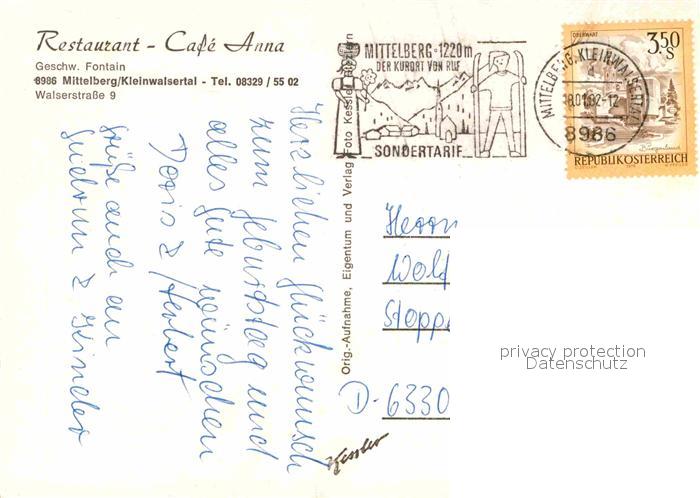 Restaurant - Café Anna
Geschw. Fontain
6986 Mittelberg/Kleinwalsertal - Tel. 08329 / 55 02
Walserstraße 9
MITTELBERG · 1220m
DER KURORT VON RUF
SONDERTARIF
MITTELBERG, KLEINWALSERTAL
18.01.82-12
8986
3.50 S
OBERWART
Burgenland
REPUBLIK ÖSTERREICH
Herzlichen Glückwunsch
zum Geburtstag und
alles Gute wünschen
Doris & Herbert
Grüße auch an
Gudrun & Kinder
Orig.-Aufnahme, Eigentum und Verlag Foto Kessler
Kessler
Herrn
Wolf
Stopp
D-6330
privacy protection
Datenschutz